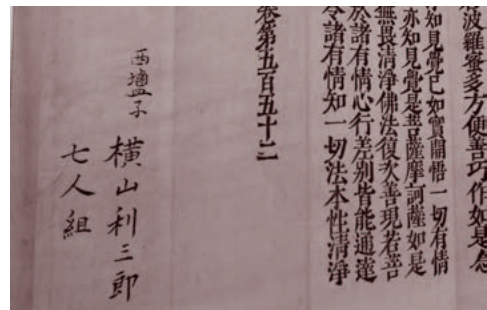 波羅蜜多方便善巧作如是念
知見覺已如實開悟一切有情
亦知見覺是菩薩摩訶薩如是
無畏清淨佛法復次善現若菩
於諸有情心行差別皆能通達
令諸有情知一切法本性清淨
卷第五百五十二
西塩子
横山利三郎
七人組